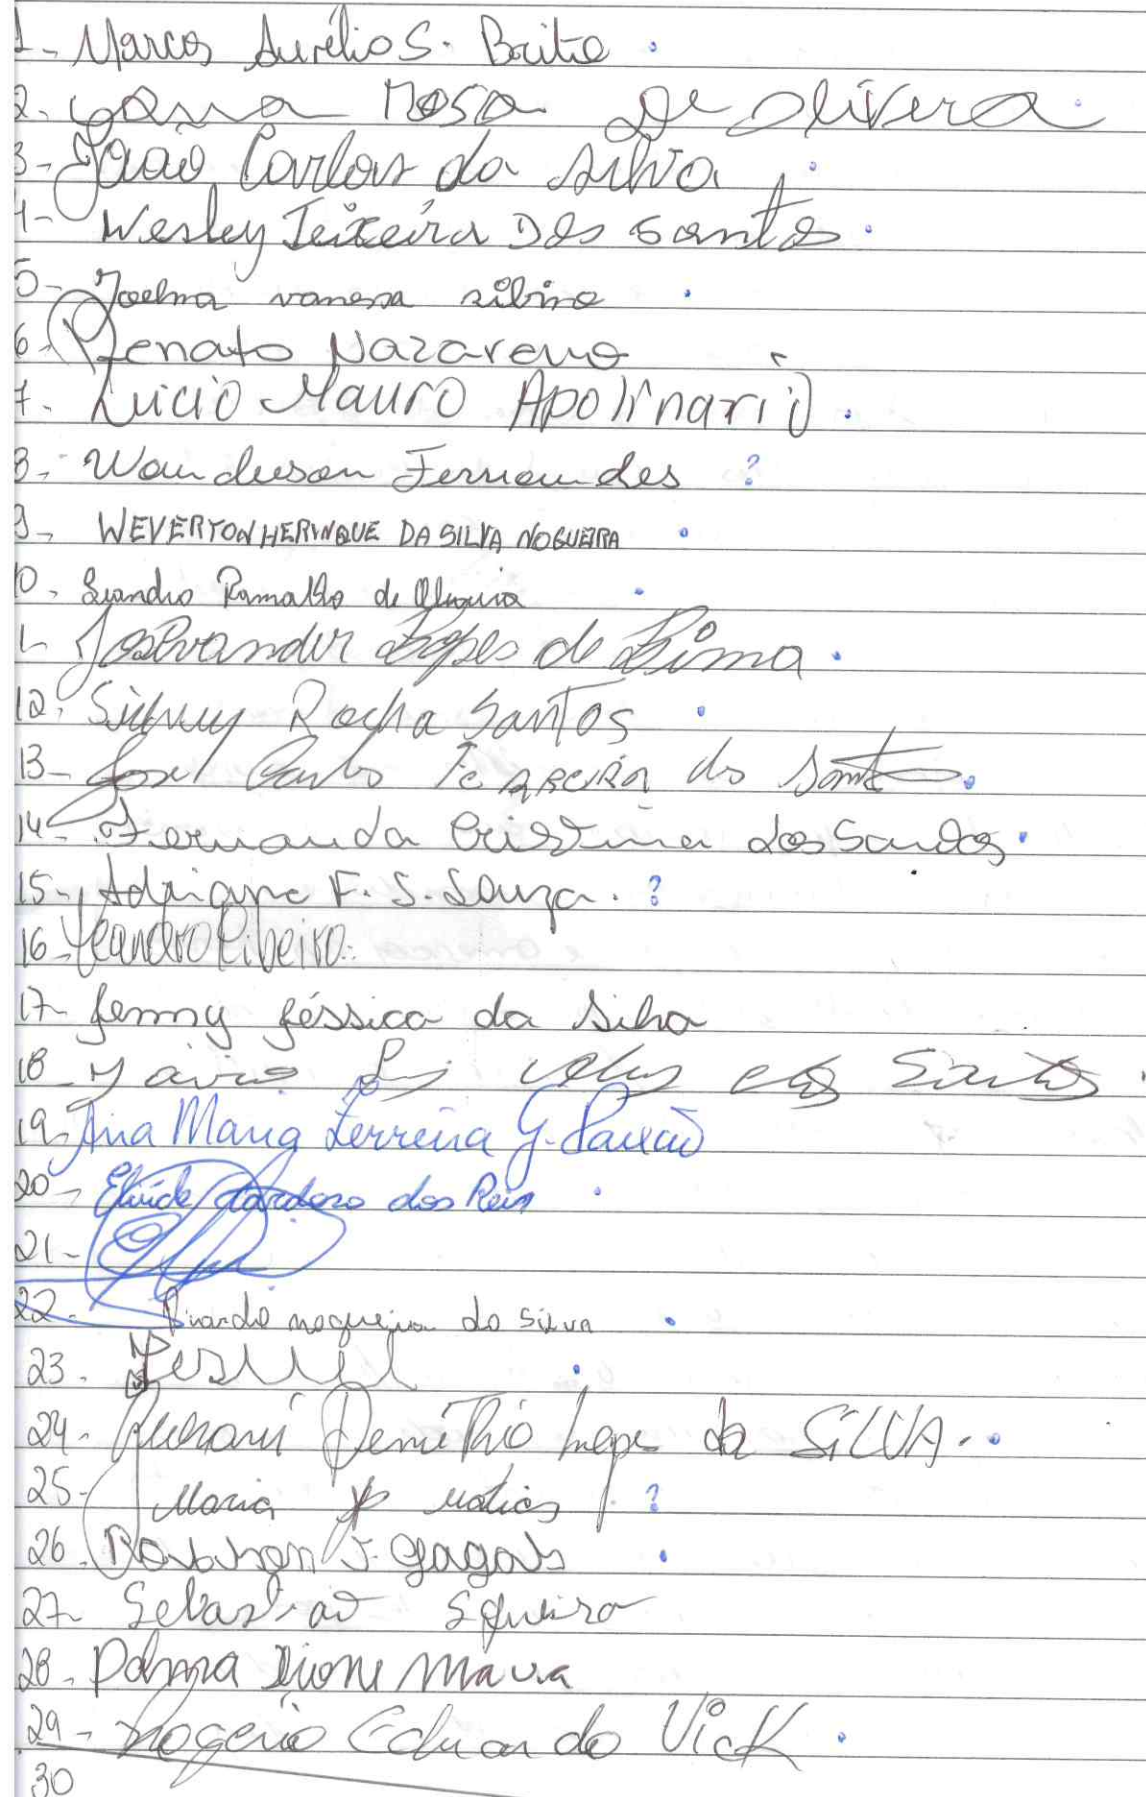 1- Marcos Aurélio S. Brito
2- Rosa De Olivera
3- João Carlos da Silva
4- Wesley Teixeira Dos Santos
5- Joelma vanessa silvino
6- Renato Nazareno
7- Lucio Mauro Apolinario
8- Wanderson Fernandes ?
9- WEVERTON HERINQUE DA SILVA NOGUEIRA
10- Leandro Ramalho de Oliveira
Josevander Lopes de Lima
12- Sidney Rocha Santos
13- José Carlos FERREIRA dos Santos
14- Fernanda Cristina dos Santos
15- Adriane F. S. Souza. ?
16- Leandro Ribeiro
17- Jenny Jéssica da Silva
18- dos Santos
19- Ana Maria Ferreira G. Paixão
20- Cardoso dos Reis
21-
22- Ricardo nogueira da Silva
23-
24- Lopes da SILVA
25- Maria Matias ?
26- Robson J.
27- Sebastião Siqueira
28- Palma Dione Maura
29- Rogério Eduardo Vick
30